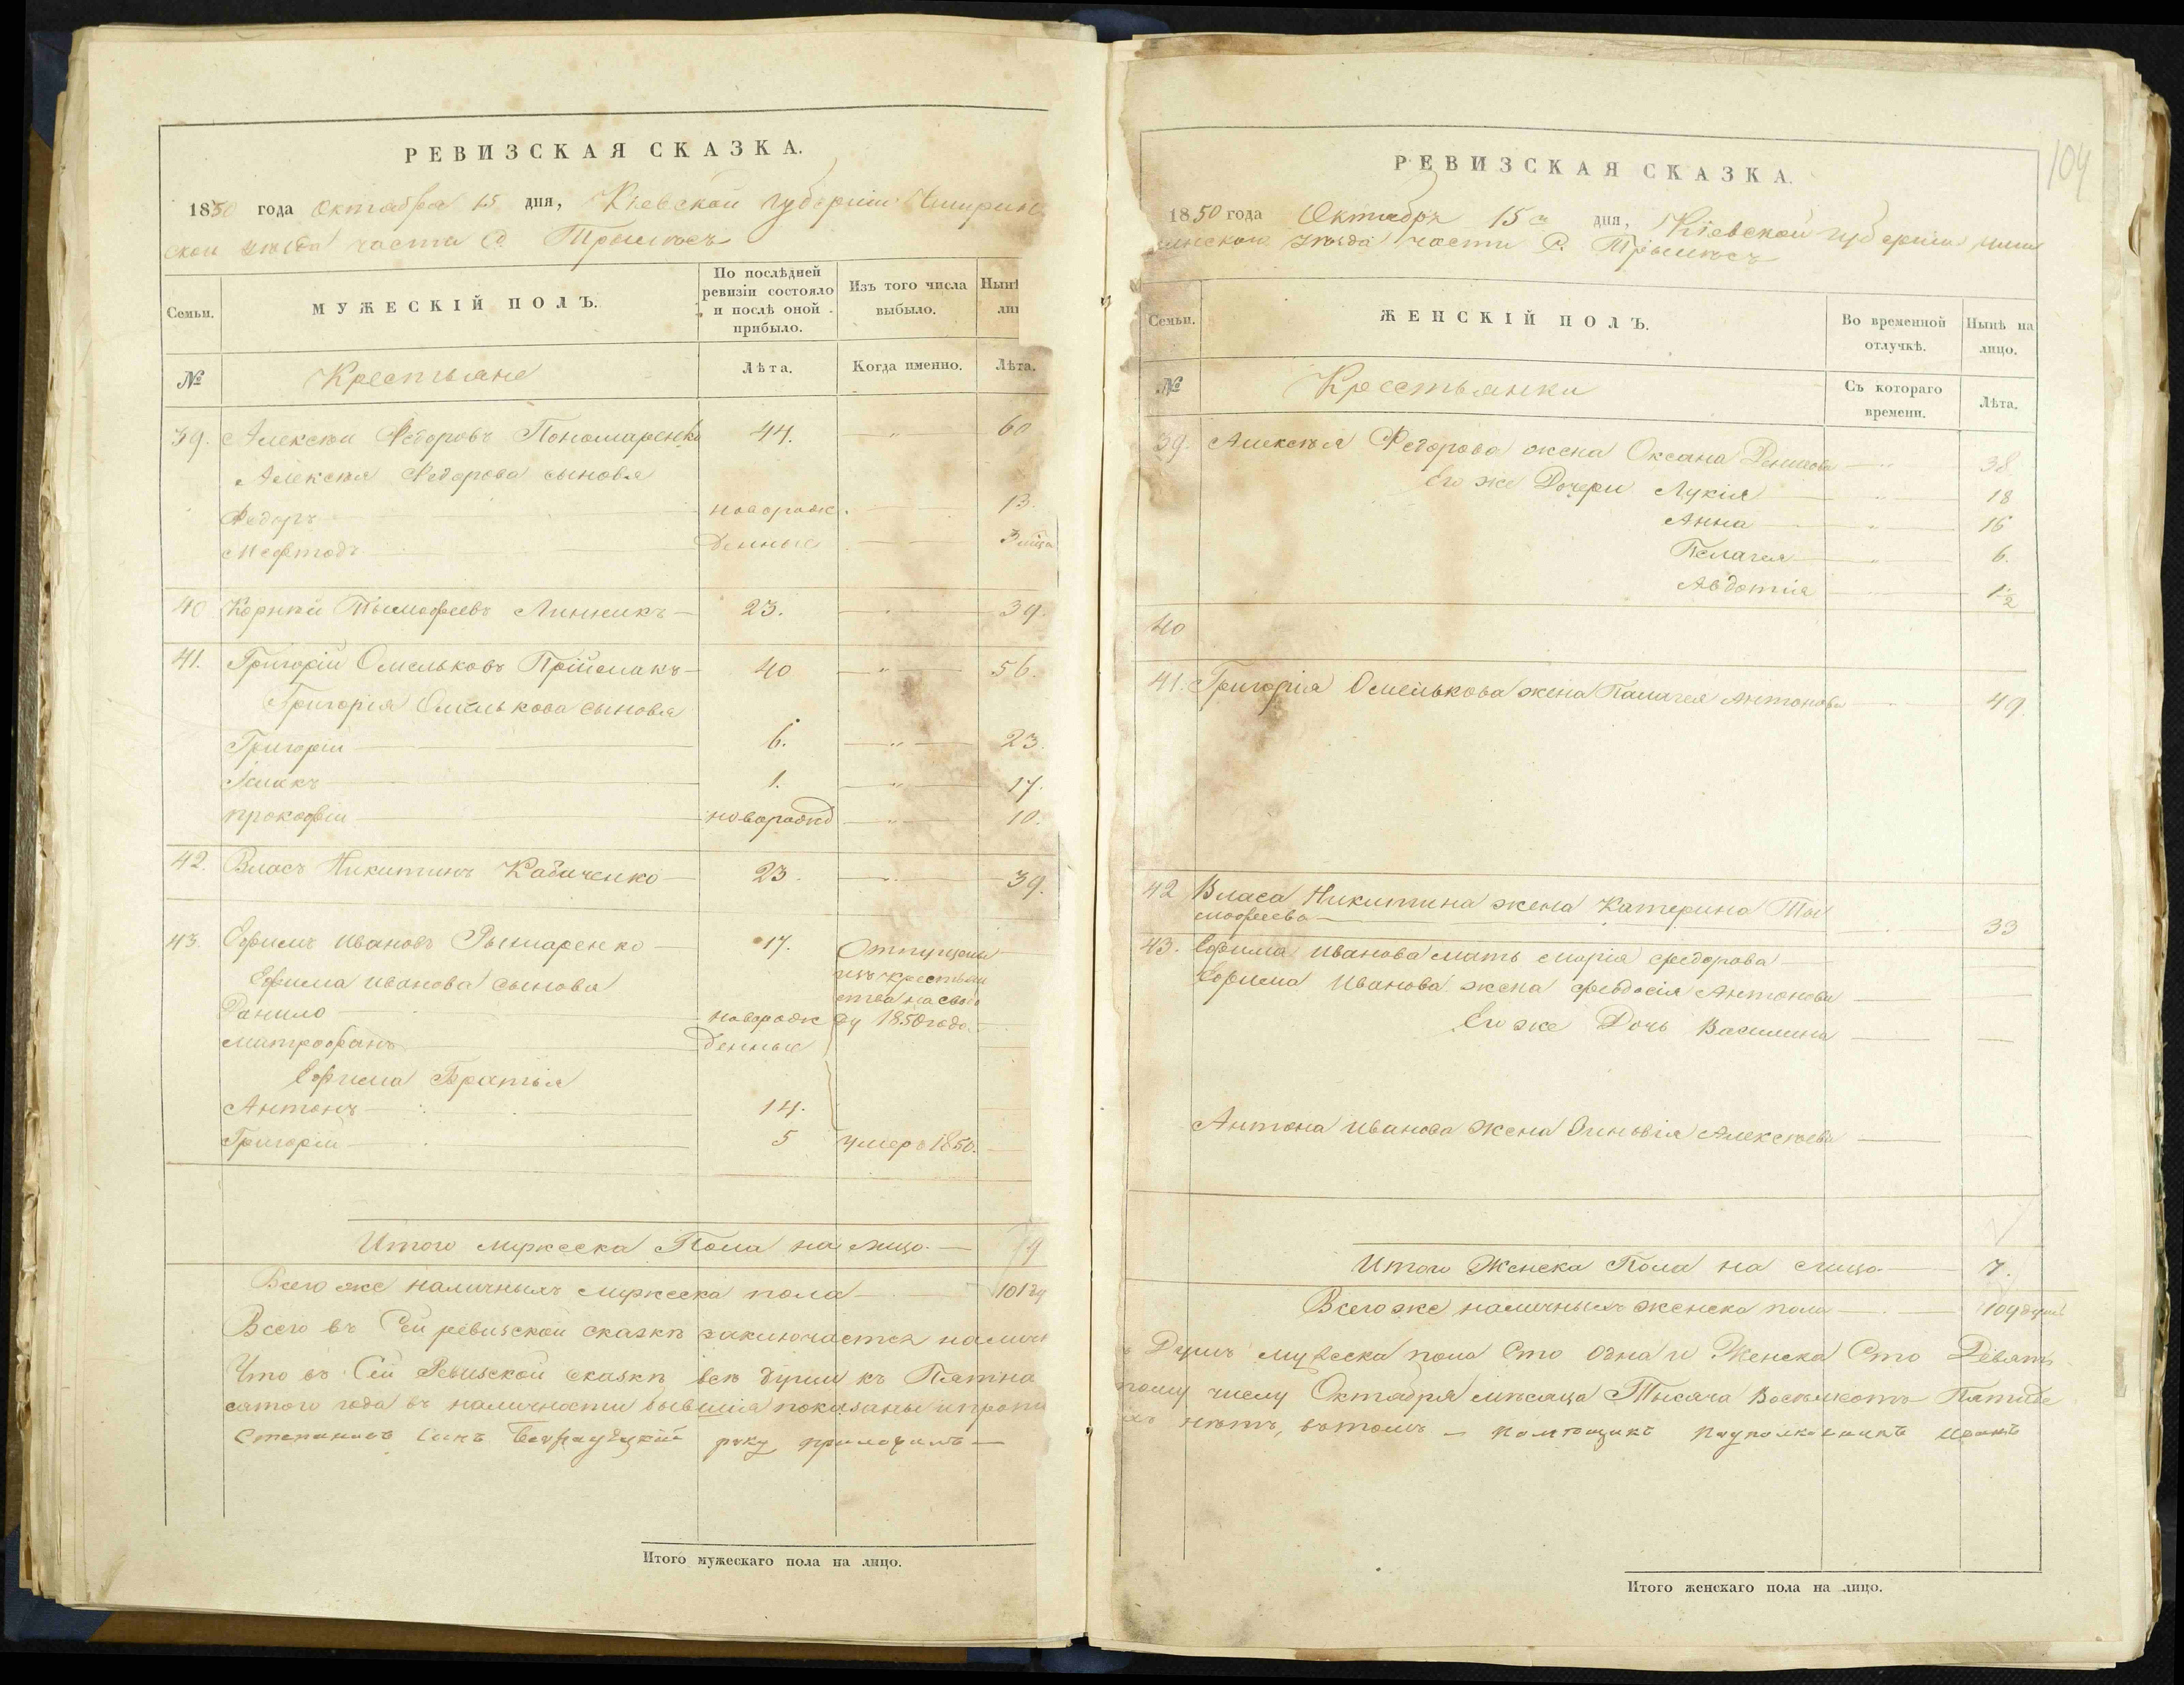 РЕВИЗСКАЯ СКАЗКА.
1850 года Октября 15 дня, Кіевской Губерніи Чигирин
ской уѣзда части С. Трилѣсъ
Семьи.
МУЖЕСКІЙ ПОЛЪ.
По послѣдней ревизіи состояло и послѣ оной прибыло.
Изъ того числа выбыло.
Нынѣ
№
Крестьяне
Лѣта.
Когда именно.
Лѣта.
39. Алексѣй Федоровъ Пономаренко 44. — 60
Алексѣя Федорова сыновья
Федоръ — новорож. — 13.
Мефтодъ — денные — 3
40 Корнѣй Тымофеевъ Линникъ — 23. — 39.
41. Григорій Омельковъ Пріймакъ — 40 — 56.
Григорія Омелькова сыновья
Григорій — 6. — 23.
— 1. — 17.
прокофій — новорожд — 10.
42. Власъ Никитинъ — 23. — 39.
43. Ефимъ Ивановъ Рымаренко — 17. Отпущены
изъ крестьян
Ефима Иванова сыновья
ства на свобо
Данило — новорож ду 1850 года
Митрофанъ — денные
Ефима Братья
Антонъ — 14.
Григорій — 5 умеръ 1850.
Итого мужеска Пола на лицо. — 9
Всего же наличныхъ мужеска пола — 101 ду
Всего въ Сей ревизской сказкѣ заключается налич
Что въ Сей Ревизской сказкѣ всѣ души къ Пятна
сятого года въ наличности бывшія показаны и
Степановъ сынъ руку приложилъ —
Итого мужескаго пола на лицо.
104
РЕВИЗСКАЯ СКАЗКА.
1850 года Октября 15 дня, Кіевской Губерніи Чиги
ринской уѣзда части С. Трилѣсъ
Семьи.
ЖЕНСКІЙ ПОЛЪ.
Во временной отлучкѣ.
Нынѣ на лицо.
№
Крестьянки
Съ котораго времени.
Лѣта.
39. Алексѣя Федорова жена Оксана Денисова — 38.
Его же Дочери Лукія — 18
Анна — 16
Пелагея — 6.
Авдотія — 1½
40
41. Григорія Омелькова жена Палагея Антонова — 49.
42 Власа Никитина жена Катерина Ты
мофеева — 33
43. Ефима Иванова мать Марія Федорова —
Ефима Иванова жена Феодосія Антонова —
Его же Дочь Василина —
Антона Иванова жена Зиновія Алексѣева —
Итого Женска Пола на лицо — 7.
Всего же наличныхъ женска пола — 109 душъ
Душъ мужеска пола Сто Одна и Женска Сто Девять
тому числу Октября мѣсяца Тысяча Восемсотъ Пятиде
нѣтъ, въ томъ — Помѣщикъ Подполковникъ Иванъ
Итого женскаго пола на лицо.